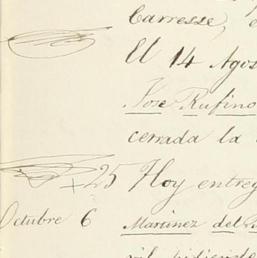 Carresse,
El 14 Agos
Jose Rufino
cerrada la
25 Hoy entreg
Octubre 6 Martinez del
pidiendo